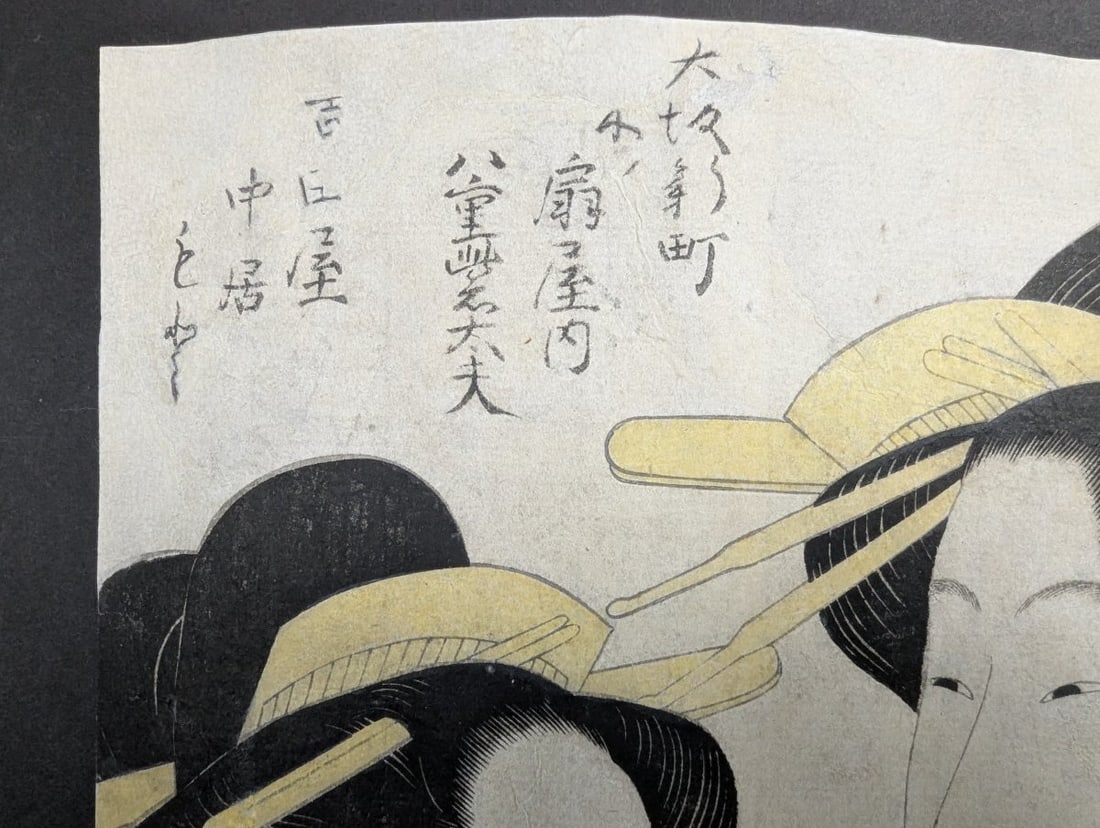 大坂新町
扇屋内
八重紫太夫
吉田屋
中居